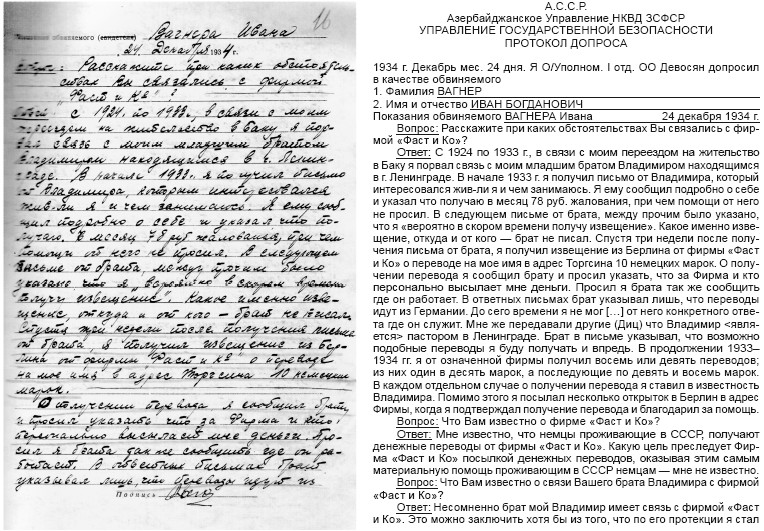 16
Показания обвиняемого (свидетеля) Вагнера Ивана
24 Декабря 1934 г.
Вопрос: Расскажите при каких обстоятель-
ствах Вы связались с фирмой
„Фаст и Ко"?
Ответ: С 1924 по 1933 г., в связи с моим
переездом на жительство в Баку я пор-
вал связь с моим младшим братом
Владимиром находящимся в г. Ленин-
граде. В начале 1933 г. я получил письмо
от Владимира, которым интересовался
жив-ли я и чем занимаюсь. Я ему сооб-
щил подробно о себе и указал что по-
лучаю в месяц 78 руб жалования, при чем
помощи от него не просил. В следующем
письме от брата, между прочим было
указано что я „вероятно в скором времени
получу извещение". Какое именно изве-
щение, откуда и от кого — брат не писал.
Спустя три недели после получения письма
от брата, я получил извещение из Бер-
лина от фирмы „Фаст и Ко" о переводе
на мое имя в адрес Торгсина 10 немецких
марок.
О получении перевода я сообщил брату,
и просил указать что за Фирма и кто
персонально высылает мне деньги. Про-
сил я брата так же сообщить где он ра-
ботает. В ответных письмах брат
указывал лишь, что переводы идут из
Подпись
А.С.С.Р.
Азербайджанское Управление НКВД ЗСФСР
УПРАВЛЕНИЕ ГОСУДАРСТВЕННОЙ БЕЗОПАСНОСТИ
ПРОТОКОЛ ДОПРОСА
1934 г. Декабрь мес. 24 дня. Я О/Уполном. I отд. ОО Девосян допросил
в качестве обвиняемого
1. Фамилия ВАГНЕР
2. Имя и отчество ИВАН БОГДАНОВИЧ
Показания обвиняемого ВАГНЕРА Ивана 24 декабря 1934 г.
Вопрос: Расскажите при каких обстоятельствах Вы связались с фир-
мой «Фаст и Ко»?
Ответ: С 1924 по 1933 г., в связи с моим переездом на жительство
в Баку я порвал связь с моим младшим братом Владимиром находящимся
в г. Ленинграде. В начале 1933 г. я получил письмо от Владимира, который
интересовался жив-ли я и чем занимаюсь. Я ему сообщил подробно о себе
и указал что получаю в месяц 78 руб. жалования, при чем помощи от него
не просил. В следующем письме от брата, между прочим было указано,
что я «вероятно в скором времени получу извещение». Какое именно изве-
щение, откуда и от кого — брат не писал. Спустя три недели после полу-
чения письма от брата, я получил извещение из Берлина от фирмы «Фаст
и Ко» о переводе на мое имя в адрес Торгсина 10 немецких марок. О полу-
чении перевода я сообщил брату и просил указать, что за Фирма и кто
персонально высылает мне деньги. Просил я брата так же сообщить
где он работает. В ответных письмах брат указывал лишь, что переводы
идут из Германии. До сего времени я не мог […] от него конкретного отве-
та где он служит. Мне же передавали другие (Диц) что Владимир <явля-
ется> пастором в Ленинграде. Брат в письме указывал, что возможно
подобные переводы я буду получать и впредь. В продолжении 1933–
1934 гг. я от означенной фирмы получил восемь или девять переводов;
из них один в десять марок, а последующие по девять и восемь марок.
В каждом отдельном случае о получении перевода я ставил в известность
Владимира. Помимо этого я посылал несколько открыток в Берлин в адрес
Фирмы, когда я подтверждал получение перевода и благодарил за помощь.
Вопрос: Что Вам известно о фирме «Фаст и Ко»?
Ответ: Мне известно, что немцы проживающие в СССР, получают
денежные переводы от фирмы «Фаст и Ко». Какую цель преследует Фир-
ма «Фаст и Ко» посылкой денежных переводов, оказывая этим самым
материальную помощь проживающим в СССР немцам — мне не известно.
Вопрос: Что Вам известно о связи Вашего брата Владимира с фирмой
«Фаст и Ко»?
Ответ: Несомненно брат мой Владимир имеет связь с фирмой «Фаст
и Ко». Это можно заключить хотя бы из того, что по его протекции я стал